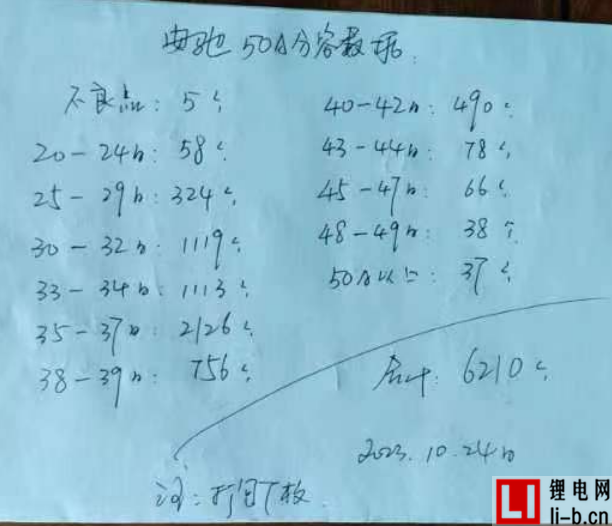 50A分容数据.
不良品: 5个
20-24A: 58个
25-29A: 324个
30-32A: 1119个
33-34A: 1113个
35-37A: 2126个
38-39A: 756个
40-42A: 490个
43-44A: 78个
45-47A: 66个
48-49A: 38个
50A以上: 37个
合计: 6210个
2023.10.24日
LI 锂电网
li-b.cn